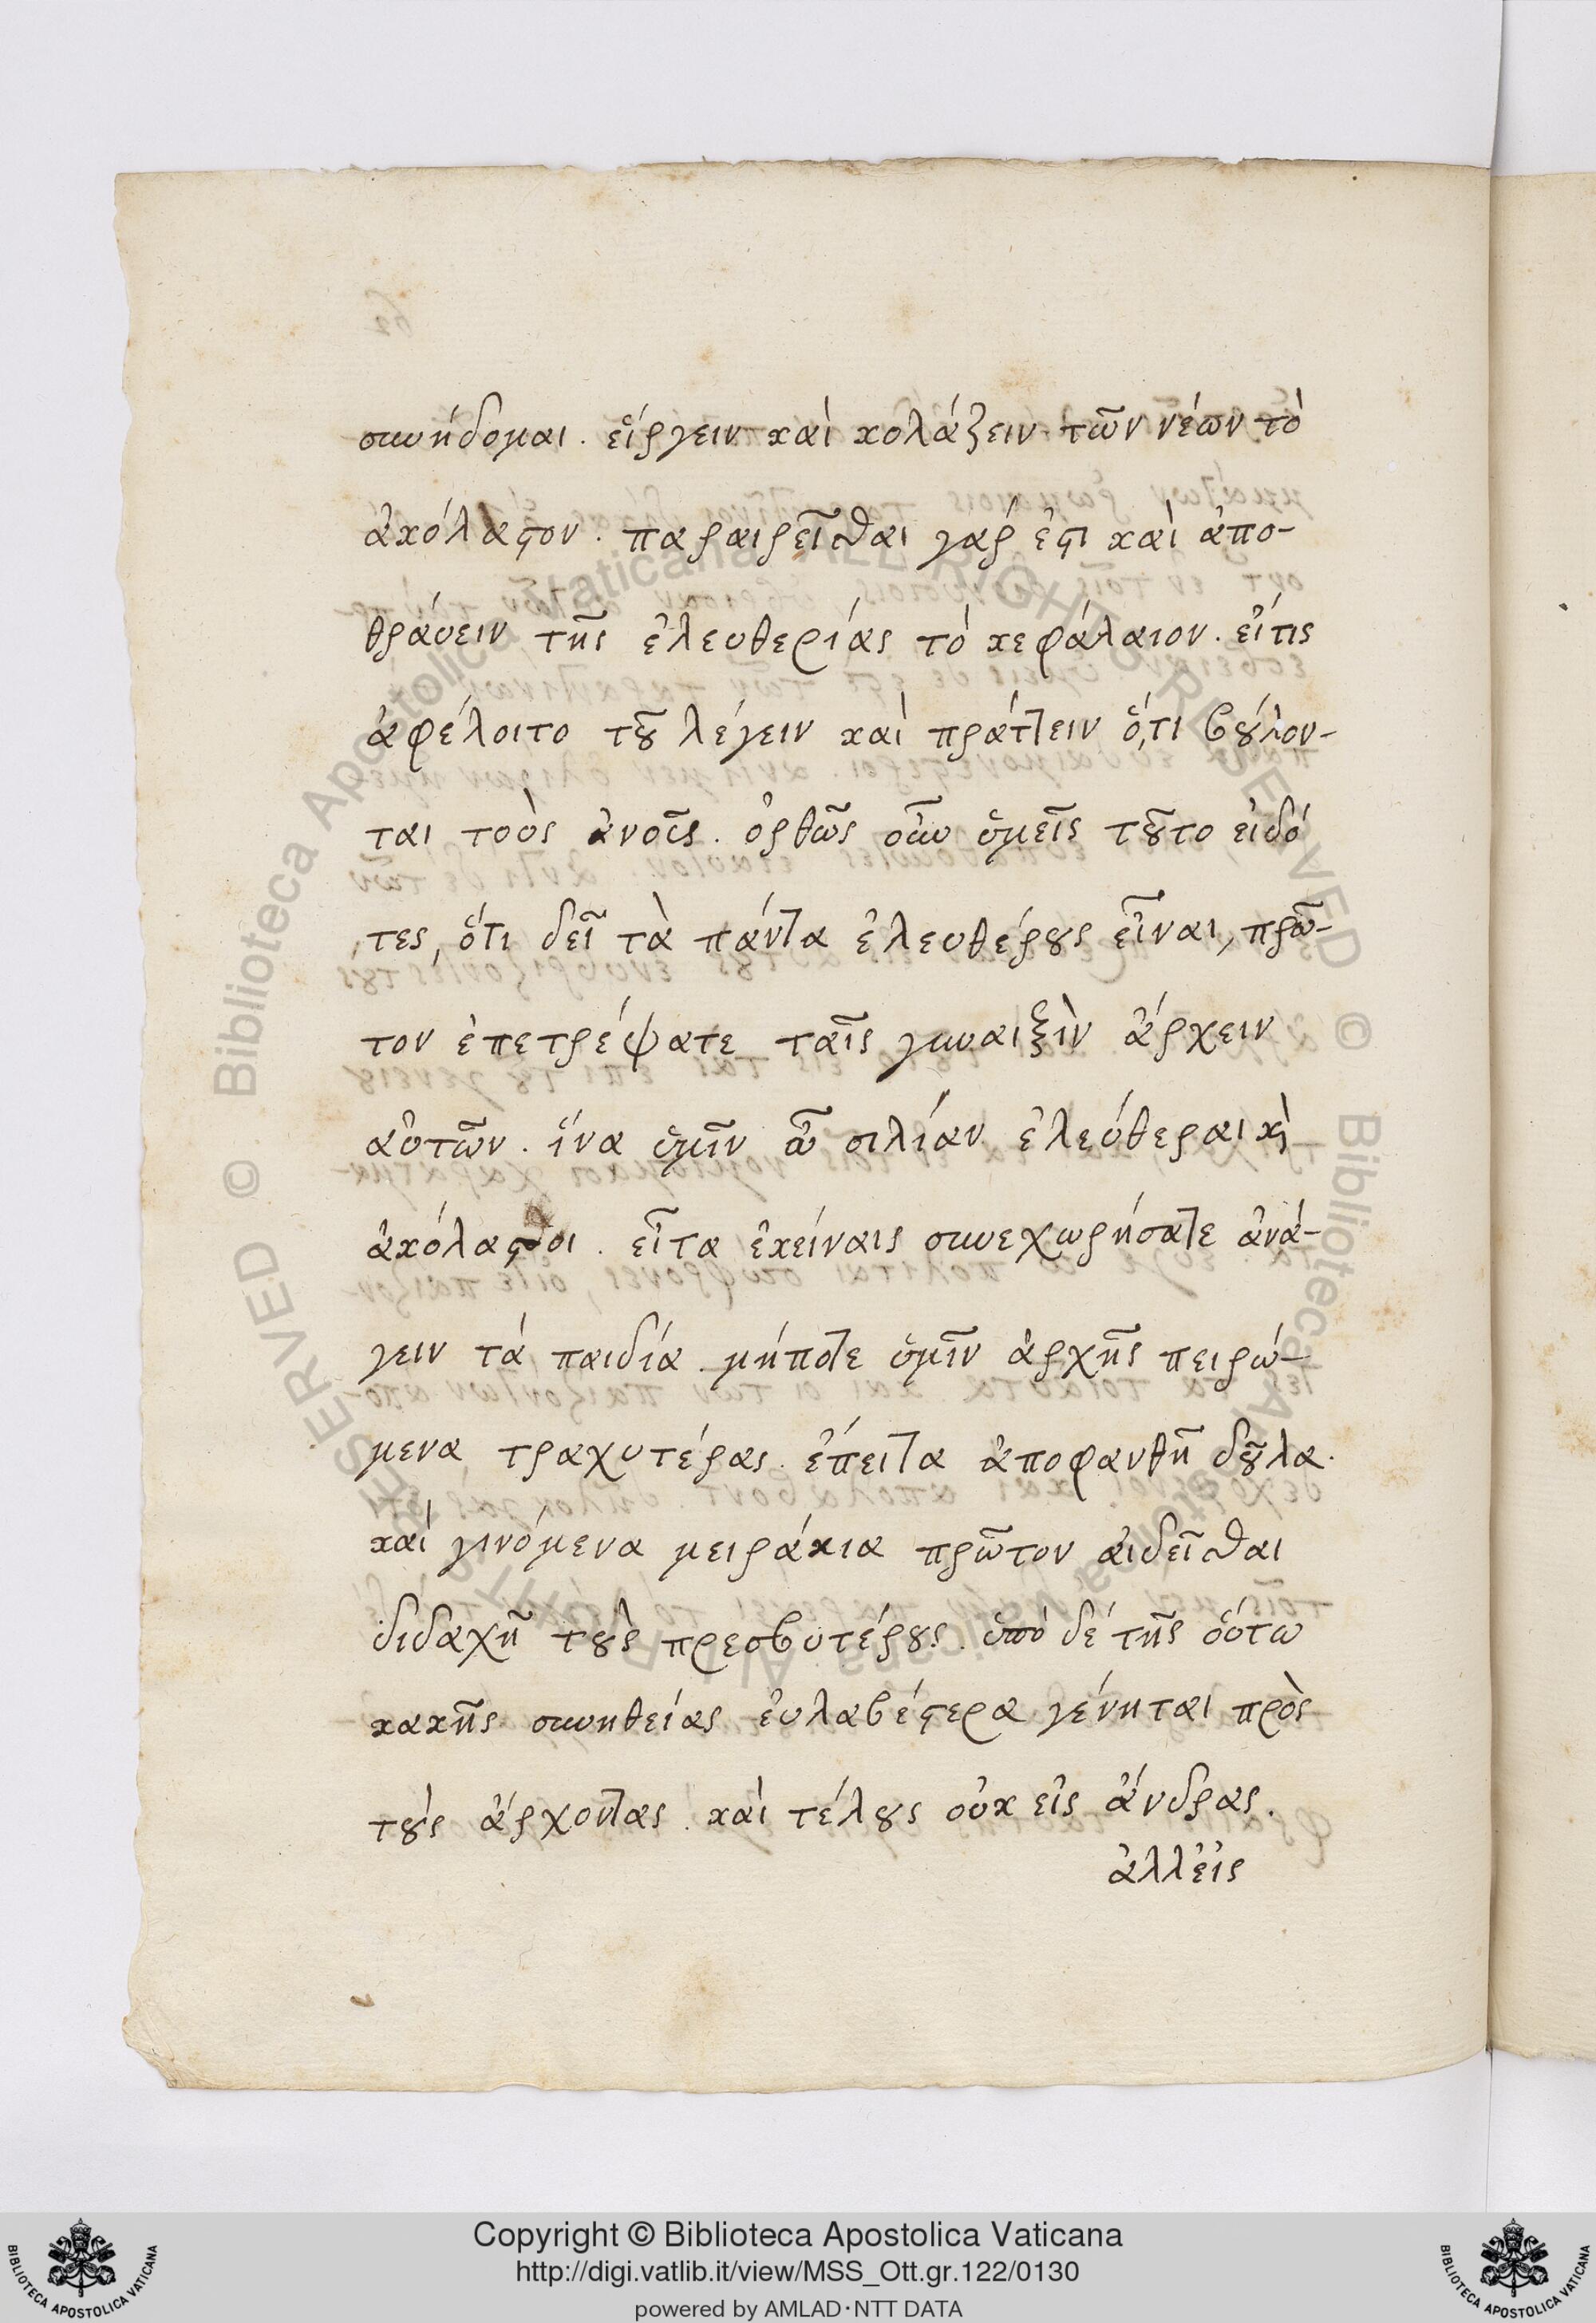 συνήδομαι. εἴργειν καὶ κολάζειν τῶν νέων τὸ
ἀκόλαστον. παραιρεῖσθαι γάρ ἐστι καὶ ἀπο-
θράυειν τῆς ἐλευθερίας τὸ κεφάλαιον. εἴτις
ἀφέλοιτο τοῦ λέγειν καὶ πράττειν ὅ,τι βούλον-
ται τοὺς ἀνοῖς. ὀρθῶς οὖν ὑμεῖς τοῦτο εἰδό
τες, ὅτι δεῖ τὰ πάντα ἐλευθέρους εἶναι, πρῶ-
τον ἐπετρέψατε ταῖς γυναιξὶν ἄρχειν
αὐτῶν. ἵνα ὑμῖν ὦ σιλίαν ἐλεύθεραι κὶ
ἀκόλαστοι. εἶτα ἐκείναις συνεχωρήσατε ἀνά-
γειν τὰ παιδία. μήποτε ὑμῖν ἀρχῆς πειρώ-
μενα τραχυτέρας. ἔπειτα ἀποφανθῆ δοῦλα.
καὶ γινόμενα μειράκια πρῶτον αἰδεῖσθαι
διδαχῆ τοὺς πρεσβυτέρους. ὑπὸ δέ τῆς οὕτω
κακῆς συνηθείας εὐλαβέστερα γένηται πρὸς
τοὺς ἄρχοντας. καὶ τέλους οὐκ εἰς ἄνδρας.
ἀλλἐις
Copyright © Biblioteca Apostolica Vaticana
http://digi.vatlib.it/view/MSS_Ott.gr.122/0130
powered by AMLAD·NTT DATA